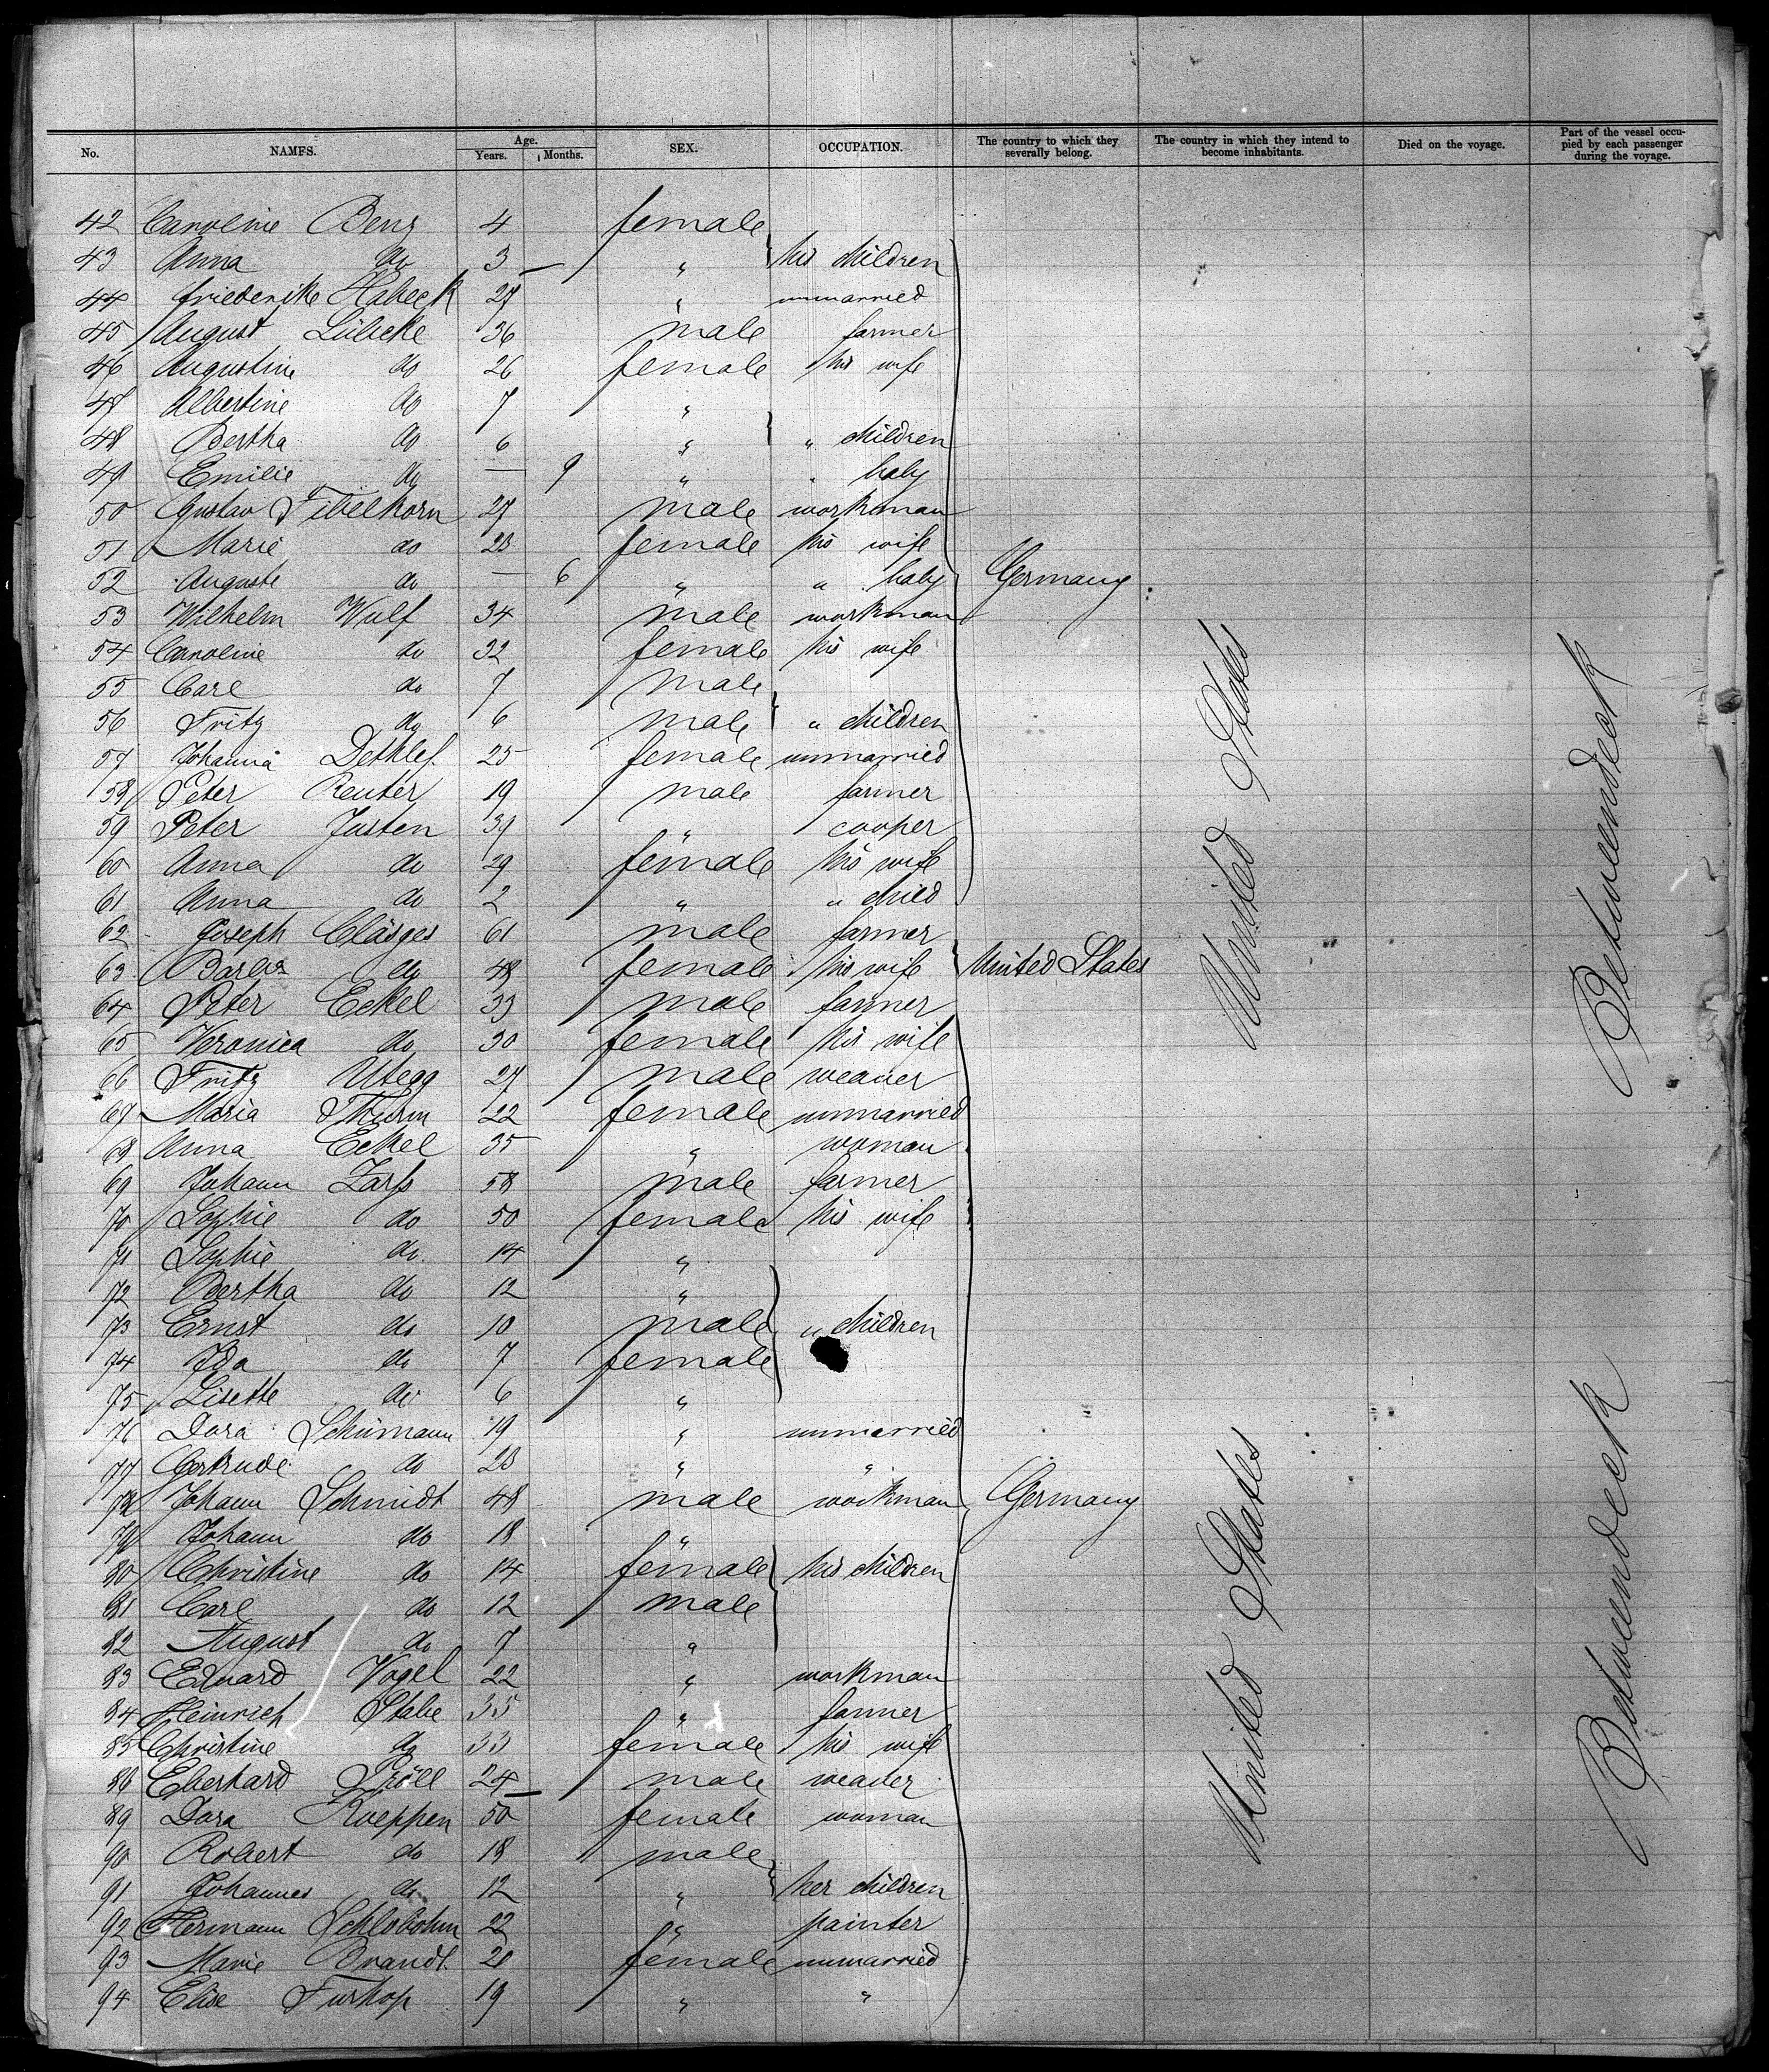 No. NAMES. Age. Years. Months. SEX. OCCUPATION. The country to which they severally belong. The country in which they intend to become inhabitants. Died on the voyage. Part of the vessel occupied by each passenger during the voyage.
42 Caroline Benz 4 female
43 Anna do 3 — " his children
44 Friederike Habeck 27 " unmarried
45 August Lübcke 36 male farmer
46 Augustine do 26 female his wife
47 Albertine do 7 "
48 Bertha do 6 " " children
49 Emilie do — 9 " " baby
50 Gustav Fibelkorn 27 male workman
51 Marie do 23 female his wife
52 Auguste do — 6 " " baby Germany
53 Wilhelm Wulf 34 male workman
54 Caroline do 32 female his wife
55 Carl do 7 male
56 Fritz do 6 male " children
57 Johanna Dethlef. 25 female unmarried
58 Peter Reuter 19 male farmer
59 Peter Justen 39 " cooper
60 Anna do 29 female his wife
61 Anna do 2 " " child
62 Joseph Cläsges 61 male farmer
63 Barba do 48 female his wife United States
64 Peter Eckel 33 male farmer
65 Veronica do 30 female his wife
66 Fritz Utegg 27 male weaver
67 Maria Thurm 22 female unmarried
68 Anna Eckel 35 " woman
69 Johann Zarß 58 male farmer
70 Sophie do 50 female his wife
71 Sophie do. 14 "
72 Bertha do 12 "
73 Ernst do 10 male " children
74 Ida do 7 female
75 Lisette do 6 "
76 Dora Schümann 19 " unmarried
77 Gertrude do 23 " "
78 Johann Schmidt 48 male workman Germany
79 Johann do 18 "
80 Christine do 14 female his children
81 Carl do 12 male
82 August do 7 "
83 Eduard Vogel 22 " workman
84 Heinrich Stabe 35 " farmer
85 Christine do 33 female his wife
86 Eberhard Pröll 24 male weaver
89 Dora Koeppen 50 female woman
90 Robert do 18 male
91 Johannes do 12 " her children
92 Hermann Schlobohm 22 " painter
93 Marie Brandt. 20 female unmarried
94 Elise Furhop 19 " "
United States
Betweendeck
United States
Betweendeck